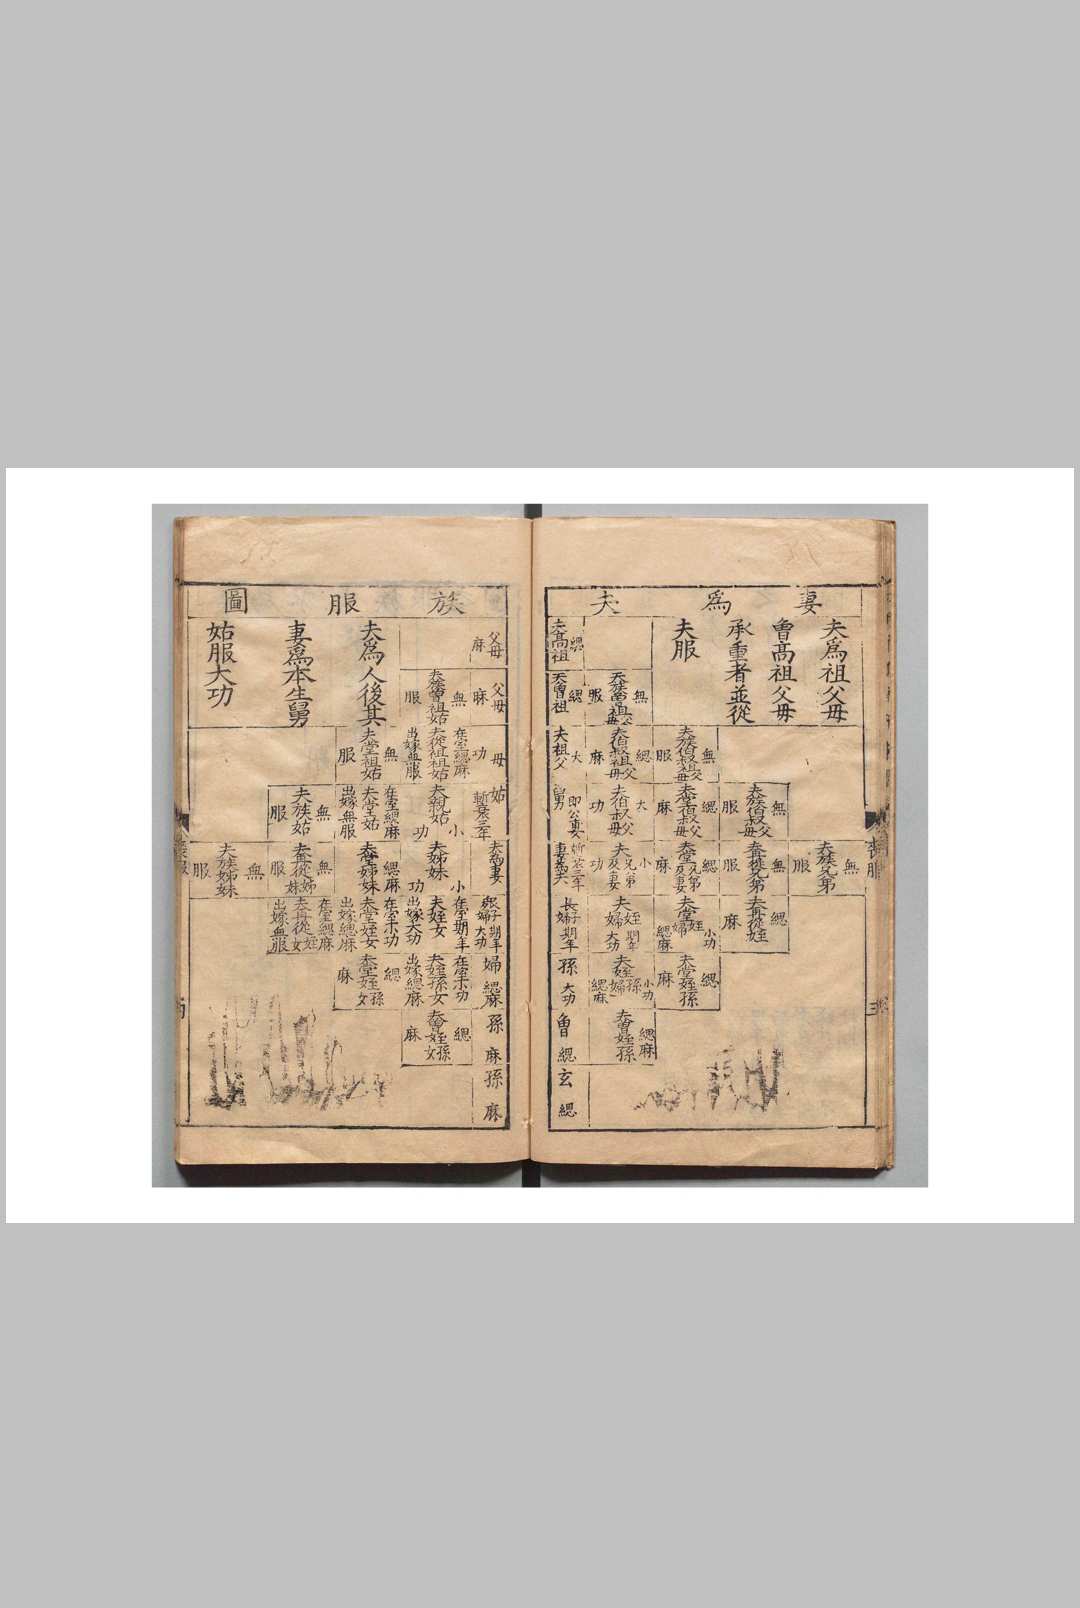 妻為夫
族服圖
夫為祖父母
曾高祖父母
承重者並從
夫服
夫為人後其
妻為本生舅
姑服大功
夫高祖父母
緦麻
夫曾祖父母
緦麻
夫族曾祖父母
無服
夫族曾祖姑
無服
夫祖父母
大功
夫伯叔祖父母
緦麻
夫族伯叔祖父母
無服
夫從祖祖姑
在室緦麻
出嫁無服
夫堂祖姑
無服
舅姑
即公婆
斬衰三年
夫伯叔父母
大功
夫堂伯叔父母
緦麻
夫族伯叔父母
無服
夫親姑
小功
夫堂姑
在室緦麻
出嫁無服
夫族姑
無服
妻為夫
斬衰三年
夫為妻
夫兄弟及妻
小功
夫堂兄弟及妻
緦麻
夫再從兄弟
無服
夫族兄弟
無服
夫姊妹
小功
夫堂姊妹
緦麻
夫再從姊妹
無服
夫族姊妹
無服
長子
期年
婦
期年
眾子
期年
婦
大功
夫姪
期年
婦
大功
夫堂姪
小功
婦
緦麻
夫再從姪
緦麻
夫姪女
在室期年
出嫁大功
夫堂姪女
在室小功
出嫁緦麻
夫再從姪女
在室緦麻
出嫁無服
孫
大功
婦
緦麻
夫姪孫
小功
婦
緦麻
夫堂姪孫
緦麻
夫姪孫女
在室小功
出嫁緦麻
夫堂姪孫女
緦麻
曾孫
緦麻
夫曾姪孫
緦麻
夫曾姪孫女
緦麻
玄孫
緦麻
喪服
三